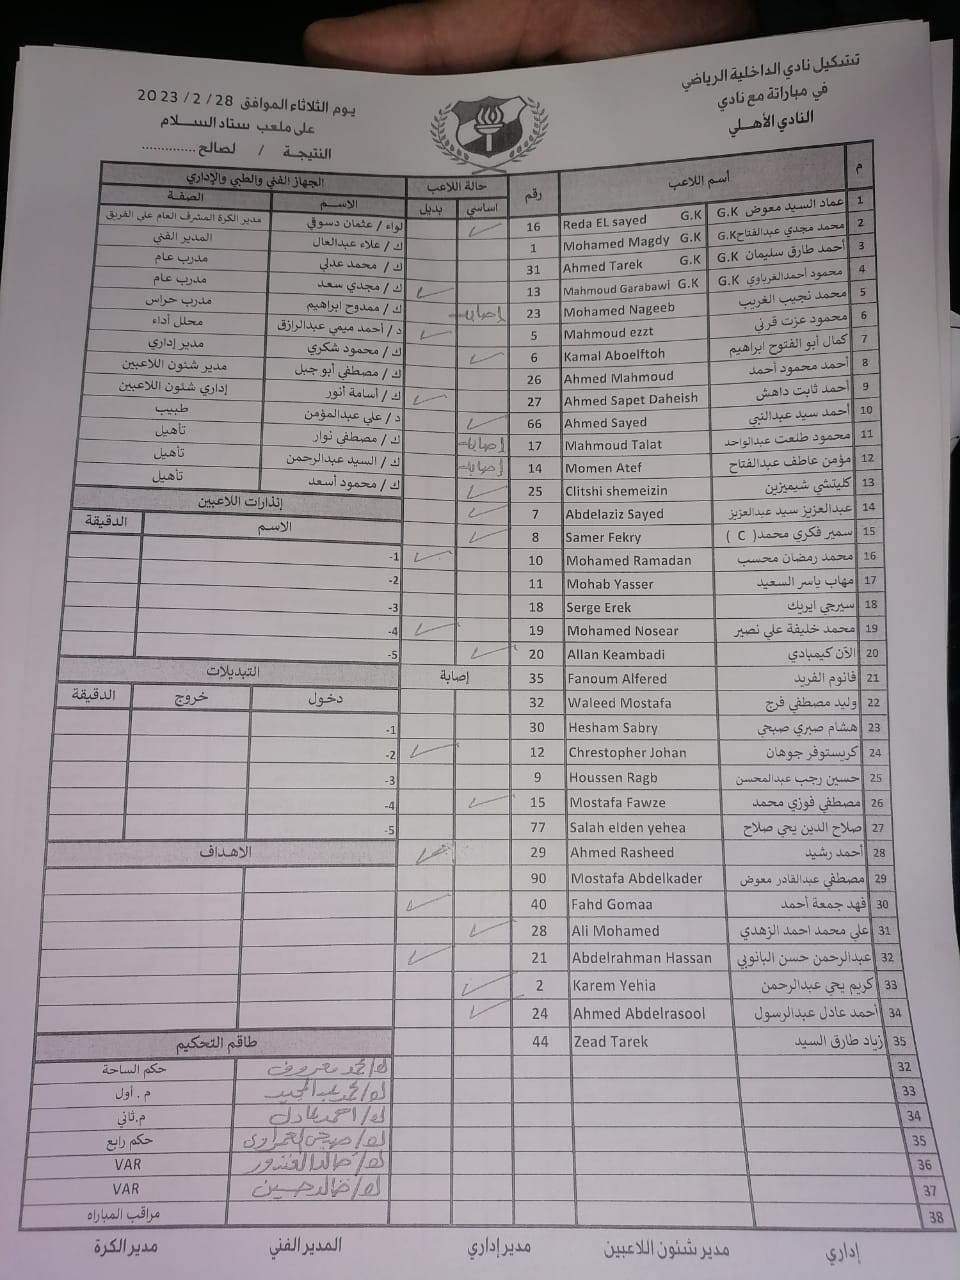 تشكيل نادي الداخلية الرياضي
في مباراة مع نادي
النادي الأهلي
يوم الثلاثاء الموافق 28 / 2 / 2023
على ملعب ستاد السلام
النتيجة / لصالح ..............
م أسم اللاعب رقم حالة اللاعب
اساسي بديل
1 عماد السيد معوض G.K Reda EL sayed G.K 16
2 محمد مجدي عبدالفتاح G.K Mohamed Magdy G.K 1
3 أحمد طارق سليمان G.K Ahmed Tarek G.K 31
4 محمود أحمدالغرباوي G.K Mahmoud Garabawi G.K 13
5 محمد نجيب الغريب Mohamed Nageeb 23 إصابة
6 محمود عزت قرني Mahmoud ezzt 5
7 كمال أبو الفتوح ابراهيم Kamal Aboelftoh 6
8 أحمد محمود أحمد Ahmed Mahmoud 26
9 أحمد ثابت داهش Ahmed Sapet Daheish 27
10 أحمد سيد عبدالنبي Ahmed Sayed 66
11 محمود طلعت عبدالواحد Mahmoud Talat 17 إصابة
12 مؤمن عاطف عبدالفتاح Momen Atef 14 إصابة
13 كليتشي شيميزين Clitshi shemeizin 25
14 عبدالعزيز سيد عبدالعزيز Abdelaziz Sayed 7
15 سمير فكري محمد( C ) Samer Fekry 8
16 محمد رمضان محسب Mohamed Ramadan 10
17 مهاب ياسر السعيد Mohab Yasser 11
18 سيرجي ايريك Serge Erek 18
19 محمد خليفة علي نصير Mohamed Nosear 19
20 الآن كيمبادي Allan Keambadi 20
21 فانوم الفريد Fanoum Alfered 35 إصابة
22 وليد مصطفي فرج Waleed Mostafa 32
23 هشام صبري صبحي Hesham Sabry 30
24 كريستوفر جوهان Chrestopher Johan 12
25 حسين رجب عبدالمحسن Houssen Ragb 9
26 مصطفي فوزي محمد Mostafa Fawze 15
27 صلاح الدين يحي صلاح Salah elden yehea 77
28 أحمد رشيد Ahmed Rasheed 29
29 مصطفي عبدالقادر معوض Mostafa Abdelkader 90
30 فهد جمعة أحمد Fahd Gomaa 40
31 علي محمد احمد الزهدي Ali Mohamed 28
32 عبدالرحمن حسن البانوبي Abdelrahman Hassan 21
33 كريم يحي عبدالرحمن Karem Yehia 2
34 أحمد عادل عبدالرسول Ahmed Abdelrasool 24
35 زياد طارق السيد Zead Tarek 44
32
33
34
35
36
37
38
الجهاز الفني والطبي والإداري
الاسم الصفة
لواء / عثمان دسوقي مدير الكرة المشرف العام على الفريق
ك / علاء عبدالعال المدير الفني
ك / محمد عدلي مدرب عام
ك / مجدي سعد مدرب عام
ك / ممدوح ابراهيم مدرب حراس
د / أحمد ميمي عبدالرازق محلل أداء
ك / محمود شكري مدير إداري
ك / مصطفي أبو جبل مدير شئون اللاعبين
ك / أسامة أنور إداري شئون اللاعبين
د / علي عبدالمؤمن طبيب
ك / مصطفي نوار تأهيل
ك / السيد عبدالرحمن تأهيل
ك / محمود أسعد تأهيل
إنذارات اللاعبين
الاسم الدقيقة
1-
2-
3-
4-
5-
التبديلات
دخول خروج الدقيقة
1-
2-
3-
4-
5-
الاهداف
طاقم التحكيم
ك/ محمد معروف حكم الساحة
ك/ محمد عبد المجيد م . أول
ك/ احمد عادل م.ثاني
ك/ صبحي العمراوي حكم رابع
ك/ خالد الغندور VAR
ك/ خالد حسين VAR
مراقب المباراه
إداري مدير شئون اللاعبين مدير إداري المدير الفني مدير الكرة